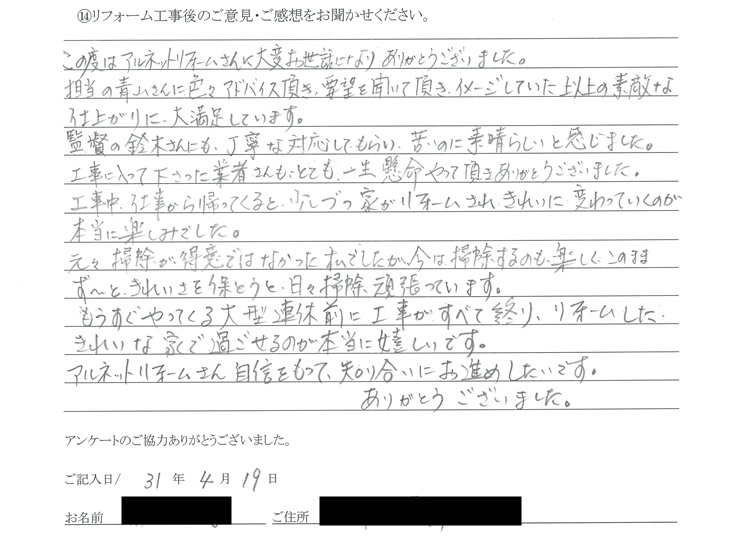 ⑭リフォーム工事後のご意見・ご感想をお聞かせください。
この度はアルネットリホームさんに大変お世話になりありがとうございました。
担当の青山さんに色々アドバイス頂き、要望を聞いて頂き、イメージしていた以上の素敵な
仕上がりに、大満足しています。
監督の鈴木さんにも、丁寧な対応してもらい、若いのに素晴らしいと感じました。
工事に入って下さった業者さんも、とても、一生懸命やって頂きありがとうございました。
工事中、仕事から帰ってくると、少しづつ家がリホームされ、きれいに変わっていくのが
本当に楽しみでした。
元々掃除が得意ではなかった私でしたが、今は、掃除するのも楽しく、このまま
ず〜と、きれいさを保とうと、日々掃除頑張っています。
もうすぐやってくる大型連休前に工事がすべて終り、リホームした
きれいな家で過ごせるのが本当に嬉しいです。
アルネットリホームさん自信をもって、知り合いにお進めしたいです。
ありがとうございました。
アンケートのご協力ありがとうございました。
ご記入日/ 31 年 4 月 19 日
お名前 ご住所